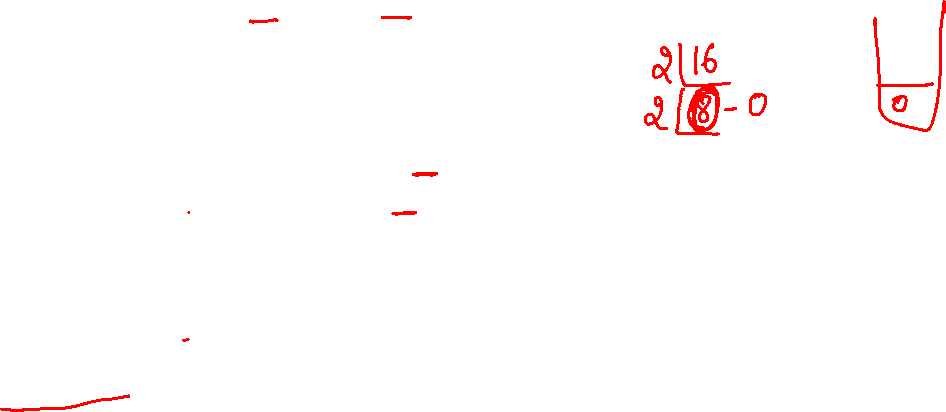 2 16
2 8 - 0
0